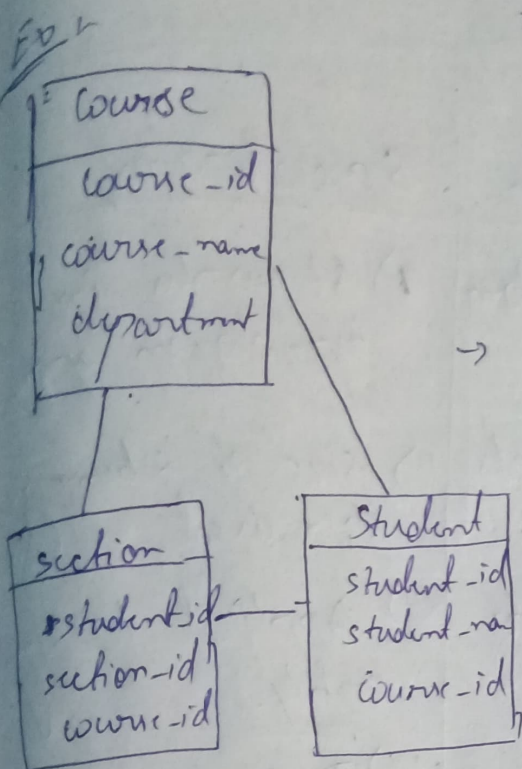 course
course_id
course_name
department
→
section
student_id
section_id
course_id
student
student_id
student_na
course_id